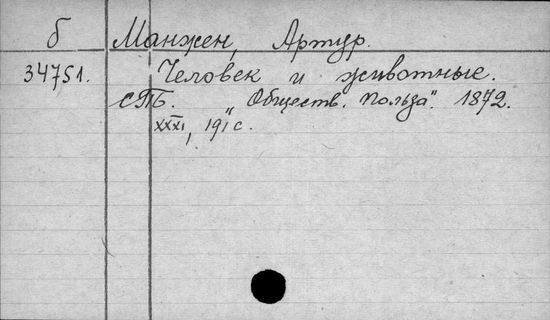 б Манжен, Артур.
34751. Человек и животные.
СПБ. "Обществ. Польза". 1872.
XXXI, 191 с.